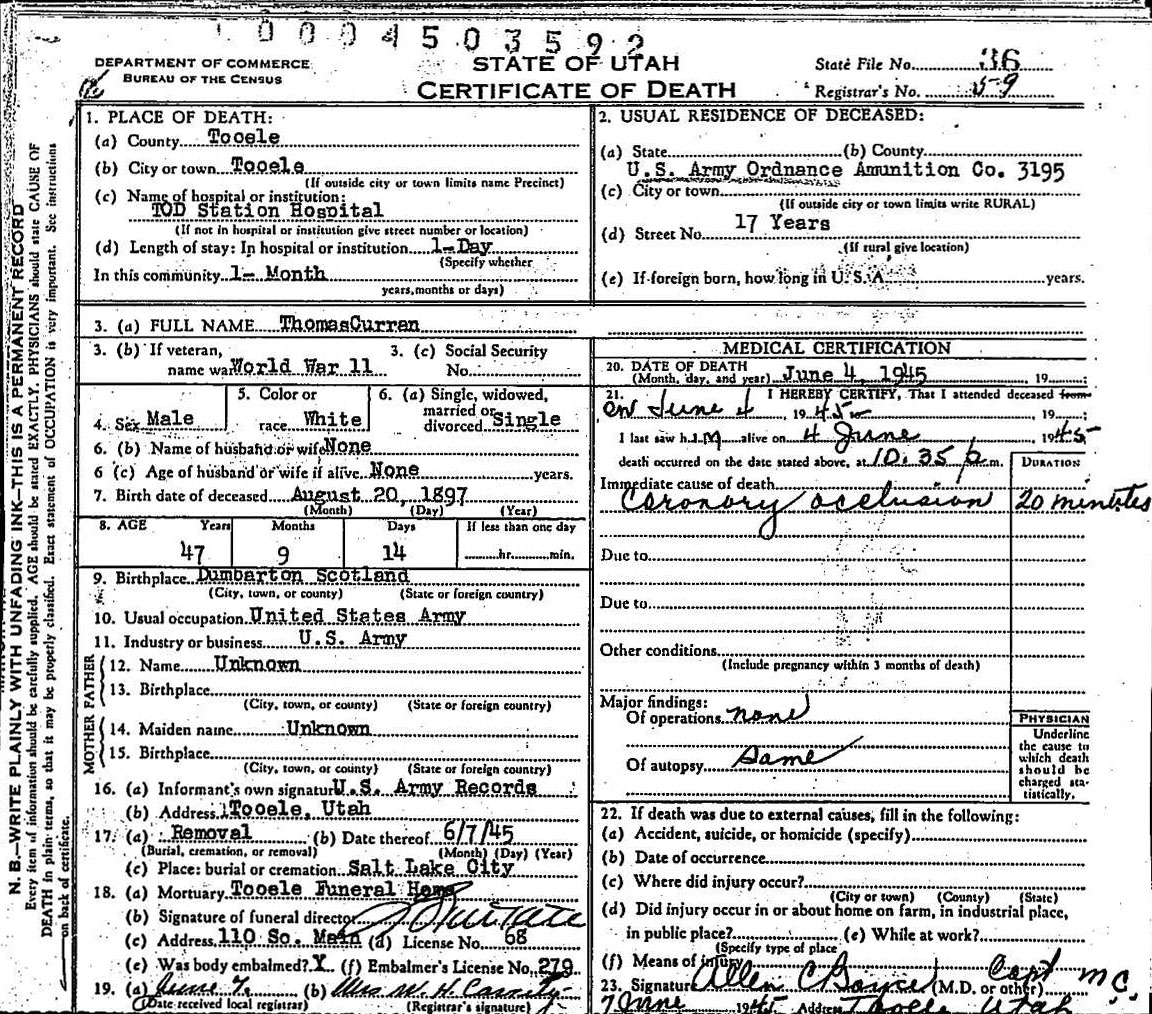 0004503592
DEPARTMENT OF COMMERCE
BUREAU OF THE CENSUS
STATE OF UTAH
CERTIFICATE OF DEATH
State File No. 36
Registrar's No. 59
N. B.—WRITE PLAINLY WITH UNFADING INK—THIS IS A PERMANENT RECORD
Every item of information should be carefully supplied. AGE should be stated EXACTLY. PHYSICIANS should state CAUSE OF
DEATH in plain terms, so that it may be properly classified. Exact statement of OCCUPATION is very important. See instructions
on back of certificate.
1. PLACE OF DEATH:
(a) County Tooele
(b) City or town Tooele
(If outside city or town limits name Precinct)
(c) Name of hospital or institution:
TOD Station Hospital
(If not in hospital or institution give street number or location)
(d) Length of stay: In hospital or institution 1-Day
(Specify whether
In this community 1- Month
years, months or days)
2. USUAL RESIDENCE OF DECEASED:
(a) State (b) County
U.S. Army Ordnance Amunition Co. 3195
(c) City or town
(If outside city or town limits write RURAL)
(d) Street No. 17 Years
(If rural, give location)
(e) If foreign born, how long in U. S. A. years.
3. (a) FULL NAME ThomasCurran
3. (b) If veteran, 3. (c) Social Security
name wa World War 11 No.
4. Sex Male
5. Color or
race White
6. (a) Single, widowed,
married or
divorced Single
6. (b) Name of husband or wife None
6 (c) Age of husband or wife if alive None years.
7. Birth date of deceased August 20, 1897
(Month) (Day) (Year)
8. AGE Years Months Days If less than one day
47 9 14 hr. min.
9. Birthplace Dumbarton Scotland
(City, town, or county) (State or foreign country)
10. Usual occupation United States Army
11. Industry or business U.S. Army
FATHER
12. Name Unknown
13. Birthplace
(City, town, or county) (State or foreign country)
MOTHER
14. Maiden name Unknown
15. Birthplace
(City, town, or county) (State or foreign country)
16. (a) Informant's own signatur U.S. Army Records
(b) Address Tooele, Utah
17. (a) Removal (b) Date thereof 6/7/45
(Burial, cremation, or removal) (Month) (Day) (Year)
(c) Place: burial or cremation Salt Lake City
18. (a) Mortuary Tooele Funeral Home
(b) Signature of funeral director
(c) Address 110 So. Main (d) License No. 68
(e) Was body embalmed? X (f) Embalmer's License No. 279
19. (a) June 7. (b) Mrs W. H. Cassity
(Date received local registrar) (Registrar's signature)
MEDICAL CERTIFICATION
20. DATE OF DEATH
(Month, day, and year) June 4, 1945 19 ;
21. I HEREBY CERTIFY, That I attended deceased from
on June 4, 1945 19 ;
I last saw him alive on 4 June, 1945
death occurred on the date stated above, at 10:35 p m.
DURATION
Immediate cause of death
Coronary occlusion 20 minutes
Due to
Due to
Other conditions
(Include pregnancy within 3 months of death)
Major findings:
Of operations none
Of autopsy Same
PHYSICIAN
Underline
the cause to
which death
should be
charged sta-
tistically.
22. If death was due to external causes, fill in the following:
(a) Accident, suicide, or homicide (specify)
(b) Date of occurrence
(c) Where did injury occur?
(City or town) (County) (State)
(d) Did injury occur in or about home on farm, in industrial place,
in public place? (e) While at work?
(Specify type of place
(f) Means of injury
23. Signature Allen C Boyce Capt M C.
(M.D. or other)
7 June 1945 Address Tooele Utah